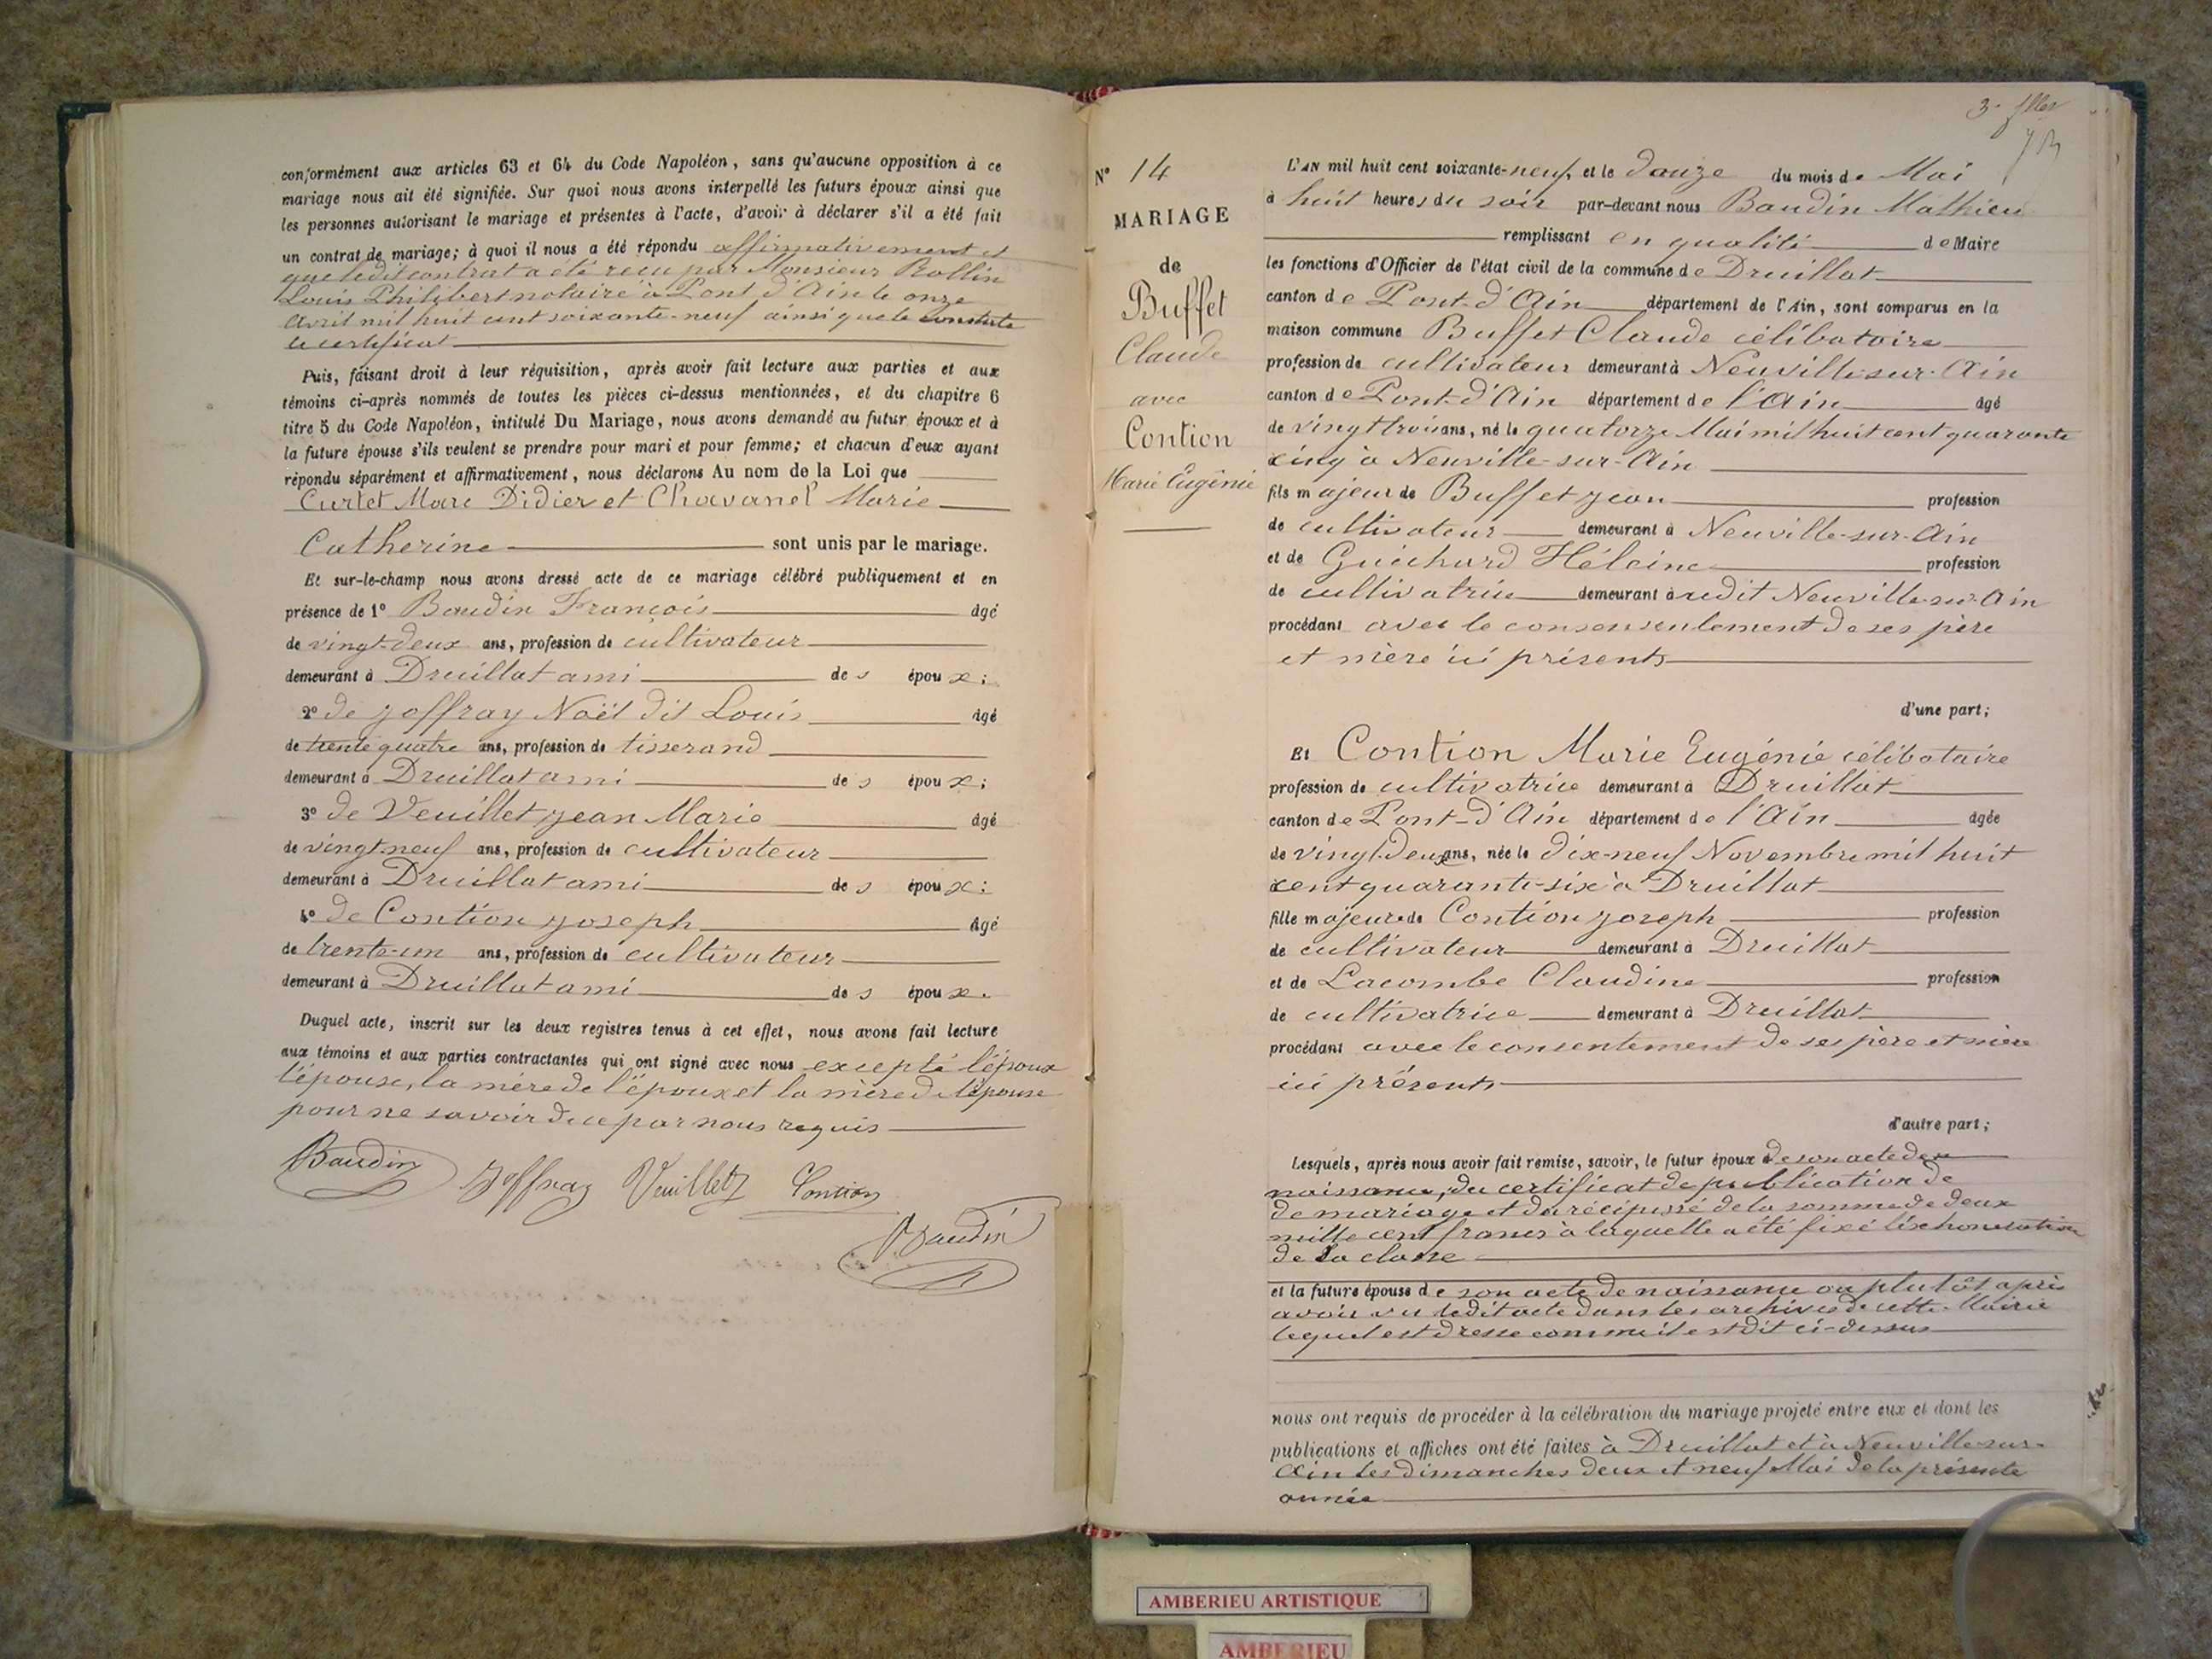 conformément aux articles 63 et 64 du Code Napoléon, sans qu'aucune opposition à ce
mariage nous ait été signifiée. Sur quoi nous avons interpellé les futurs époux ainsi que
les personnes autorisant le mariage et présentes à l'acte, d'avoir à déclarer s'il a été fait
un contrat de mariage; à quoi il nous a été répondu affirmativement et
que ledit contrat a été reçu par Monsieur Rollin
Louis Philibert notaire à Pont d'Ain le onze
avril mil huit cent soixante-neuf ainsi que le constate
le certificat
Puis, faisant droit à leur réquisition, après avoir fait lecture aux parties et aux
témoins ci-après nommés de toutes les pièces ci-dessus mentionnées, et du chapitre 6
titre 5 du Code Napoléon, intitulé Du Mariage, nous avons demandé au futur époux et à
la future épouse s'ils veulent se prendre pour mari et pour femme; et chacun d'eux ayant
répondu séparément et affirmativement, nous déclarons Au nom de la Loi que
Curtet Marc Didier et Chavanel Marie
Catherine sont unis par le mariage.
Et sur-le-champ nous avons dressé acte de ce mariage célébré publiquement et en
présence de 1° Baudin François âgé
de vingt-deux ans, profession de cultivateur
demeurant à Druillat ami des époux;
2° de Joffray Noël dit Louis âgé
de trente quatre ans, profession de tisserand
demeurant à Druillat ami des époux;
3° de Veuillet Jean Marie âgé
de vingt-neuf ans, profession de cultivateur
demeurant à Druillat ami des époux;
4° de Contion Joseph âgé
de trente-un ans, profession de cultivateur
demeurant à Druillat ami des époux.
Duquel acte, inscrit sur les deux registres tenus à cet effet, nous avons fait lecture
aux témoins et aux parties contractantes qui ont signé avec nous excepté l'époux
l'épouse, la mère de l'époux et la mère de l'épouse
pour ne savoir de ce par nous requis
Baudin Joffray Veuillet Contion
Baudin
3e
N° 14
MARIAGE
de
Buffet
Claude
avec
Contion
Marie Eugénie
L'AN mil huit cent soixante-neuf, et le douze du mois de Mai
à huit heures du soir par-devant nous Baudin Mathieu
remplissant en qualité de Maire
les fonctions d'Officier de l'état civil de la commune de Druillat
canton de Pont-d'Ain département de l'Ain, sont comparus en la
maison commune Buffet Claude célibataire
profession de cultivateur demeurant à Neuville-sur-Ain
canton de Pont-d'Ain département de l'Ain âgé
de vingt trois ans, né le quatorze Mai mil huit cent quarante
cinq à Neuville-sur-Ain
fils majeur de Buffet Jean profession
de cultivateur demeurant à Neuville-sur-Ain
et de Guichard Héleine profession
de cultivatrice demeurant à udit Neuville-sur-Ain
procédant avec le consensentement de ses père
et mère ici présents
d'une part;
Et Contion Marie Eugénie célibataire
profession de cultivatrice demeurant à Druillat
canton de Pont-d'Ain département de l'Ain âgée
de vingt-deux ans, née le dix-neuf Novembre mil huit
cent quarante-six à Druillat
fille majeure de Contion Joseph profession
de cultivateur demeurant à Druillat
et de Lacombe Claudine profession
de cultivatrice demeurant à Druillat
procédant avec le consentement de ses père et mère
ici présents
d'autre part;
Lesquels, après nous avoir fait remise, savoir, le futur époux de son acte de
naissance, du certificat de publication de
de mariage et du récépissé de la somme de deux
mille cent francs à laquelle a été fixé l'exhonération
de sa classe
et la future épouse de son acte de naissance ou plutôt après
avoir vu ledit acte dans les archives de cette Mairie
lequel est dressé comme il est dit ci-dessus
nous ont requis de procéder à la célébration du mariage projeté entre eux et dont les
publications et affiches ont été faites à Druillat et à Neuville-sur-
Ain les dimanches deux et neuf Mai de la présente
année
AMBERIEU ARTISTIQUE
AMBERIEU